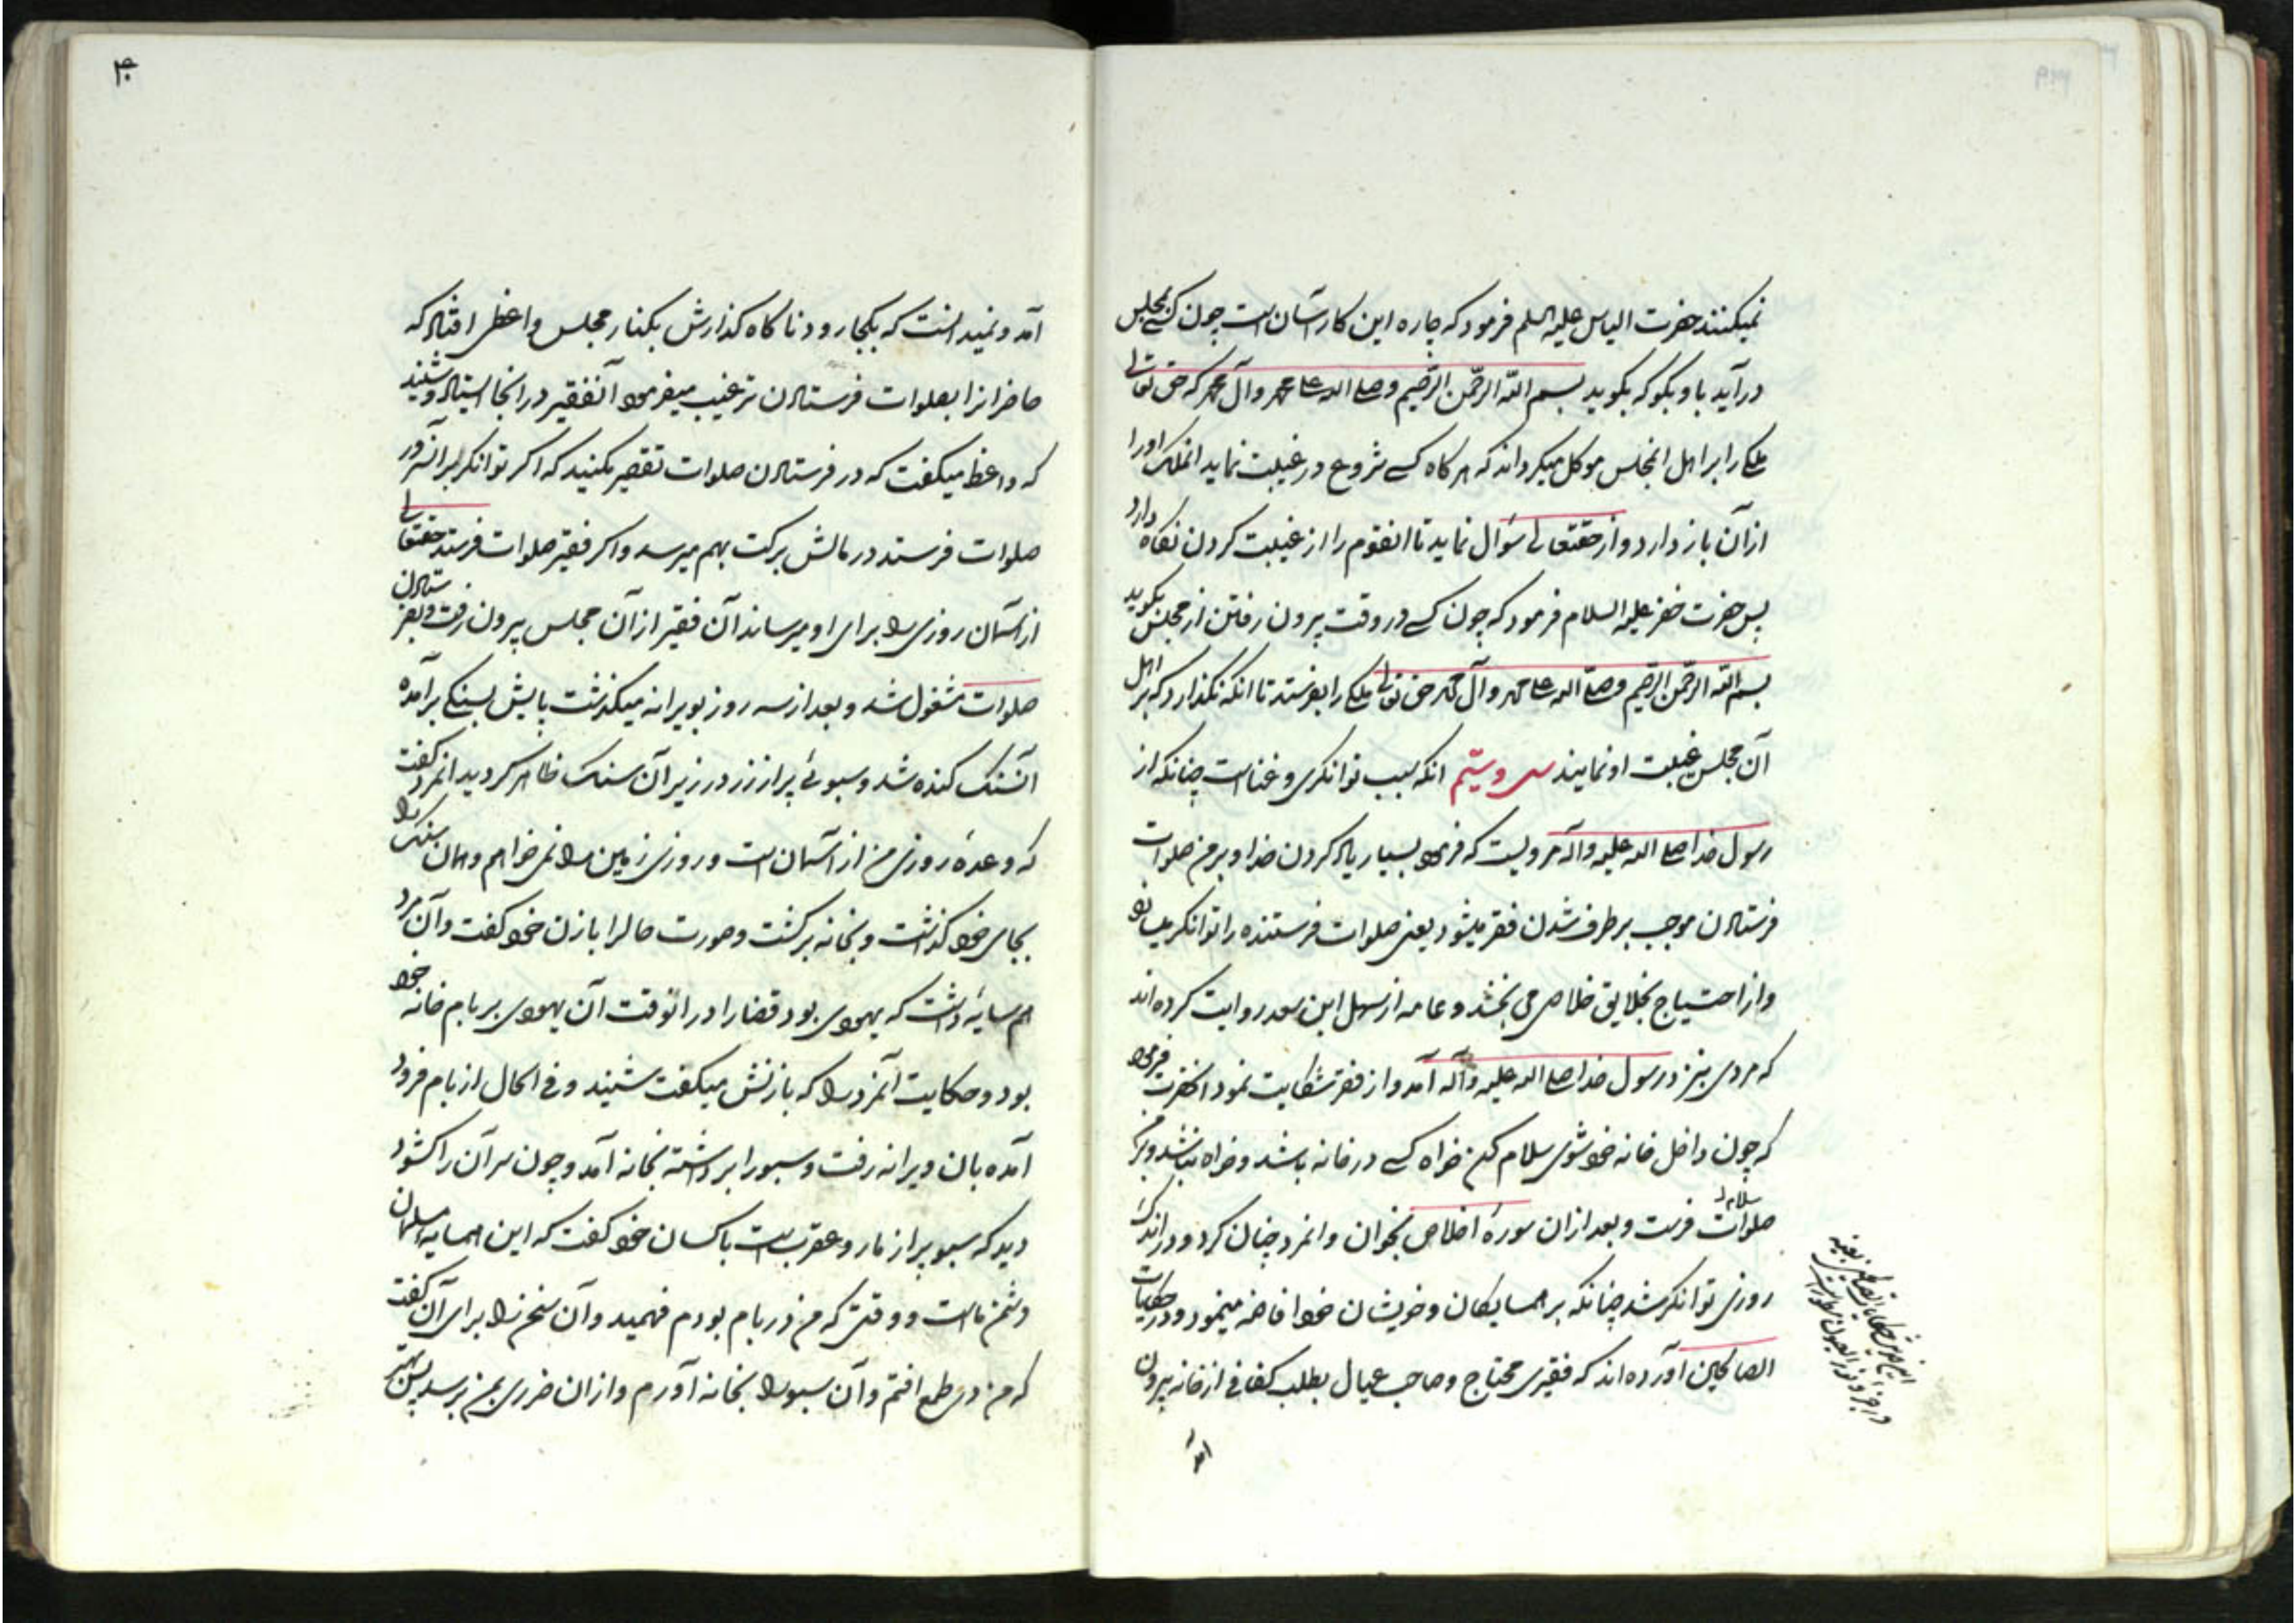 نمیکنند حضرت الیاس علیه السلم فرمود که چاره این کار آسان است چون کسی بمجلس
در آید باو بگو که بگوید بسم الله الرحمن الرحیم وصلی الله علی محمد وآل محمد که حق تعالی
ملکی را بر اهل انمجلس موکل میکرداند که هرکاه کسی شروع در غیبت نماید انملک اورا
از آن باز دارد و از حقتعالی سؤال نماید تا انقوم را از غیبت کردن نکاه دارد
پس حضرت خضر علیه السلام فرمود که چون کسی در وقت بیرون رفتن از مجلس بکوید
بسم الله الرحمن الرحیم وصلی الله علی محمد وآل محمد حق تعالی ملکی را بفرستد تا انکه نکذارد که بر اهل
آن مجلس غیبت او نمایند سی وسیّم انکه سبب توانکری وغناست چنانکه از
رسول خدا صلی الله علیه وآله مرویست که فرمود بسیار یاد کردن خدا وبر من صلوات
فرستادن موجب برطرف شدن فقر میشود یعنی صلوات فرستنده را توانکر میسازد
واز احتیاج بخلایق خلاصی می بخشد وعامه از سهل ابن سعد روایت کرده اند
که مردی بنزد رسول خدا صلی الله علیه وآله آمد واز فقر شکایت نمود انحضرت فرمود
که چون داخل خانه خود شوی سلام کن خواه کسی در خانه باشد وخواه نباشد وبر من
سلام و
صلوات فرست وبعد از ان سورهٔ اخلاص بخوان وانمرد چنان کرد ودر اندک
روزی توانکر شد چنانکه بر همسایکان وخویشان خود افاضه مینمود ودر حکایات
الصالحین آورده اند که فقیری محتاج وصاحب عیال بطلب کفافی از خانه بیرون
آمد
۴۰
آمد ونمیدانست که بکجا رود ناکاه کذارش بکنار مجلس واعظی افتاد که
حاضرانرا بصلوات فرستادن ترغیب میفرمود آنفقیر در انجا ایستاد وشنید
که واعظ میکفت که در فرستادن صلوات تقصیر مکنید که اکر توانکر بر انسرور
صلوات فرستد در مالش برکت بهم میرسد واکر فقیر صلوات فرستد حقتعالی
از آسمان روزی را برای او میرساند آن فقیر از آن مجلس بیرون رفت وبفرستادن
صلوات مشغول شد وبعد از سه روز بویرانه میکذشت پایش بسنکی برآمده
آنسنک کنده شد وسبوئی پر از زر در زیر آن سنک ظاهر کردید انمرد کفت
که وعدهٔ روزی من از آسمان است وروزی زمین را نمی خواهم وهمان سنک را
بجای خود کذاشت وبخانه برکشت وصورت حالرا با زن خود کفت وآن مرد
همسایهٔ داشت که یهودی بود قضا را در انوقت آن یهودی بر بام خانه خود
بود وحکایت آنمرد را که بازنش میکفت شنید وفی الحال از بام فرود
آمده بان ویرانه رفت وسبورا برداشته بخانه آمد وچون سر آن را کشود
دید که سبو پر از مار وعقرب است با کسان خود کفت که این همسایه مسلمان
دشمن ماست ووقتی که من در بام بودم فهمید وآن سخن را برای آن کفت
که من در طمع افتم وآن سبورا بخانه آورم واز ان ضرری بمن برسد پس